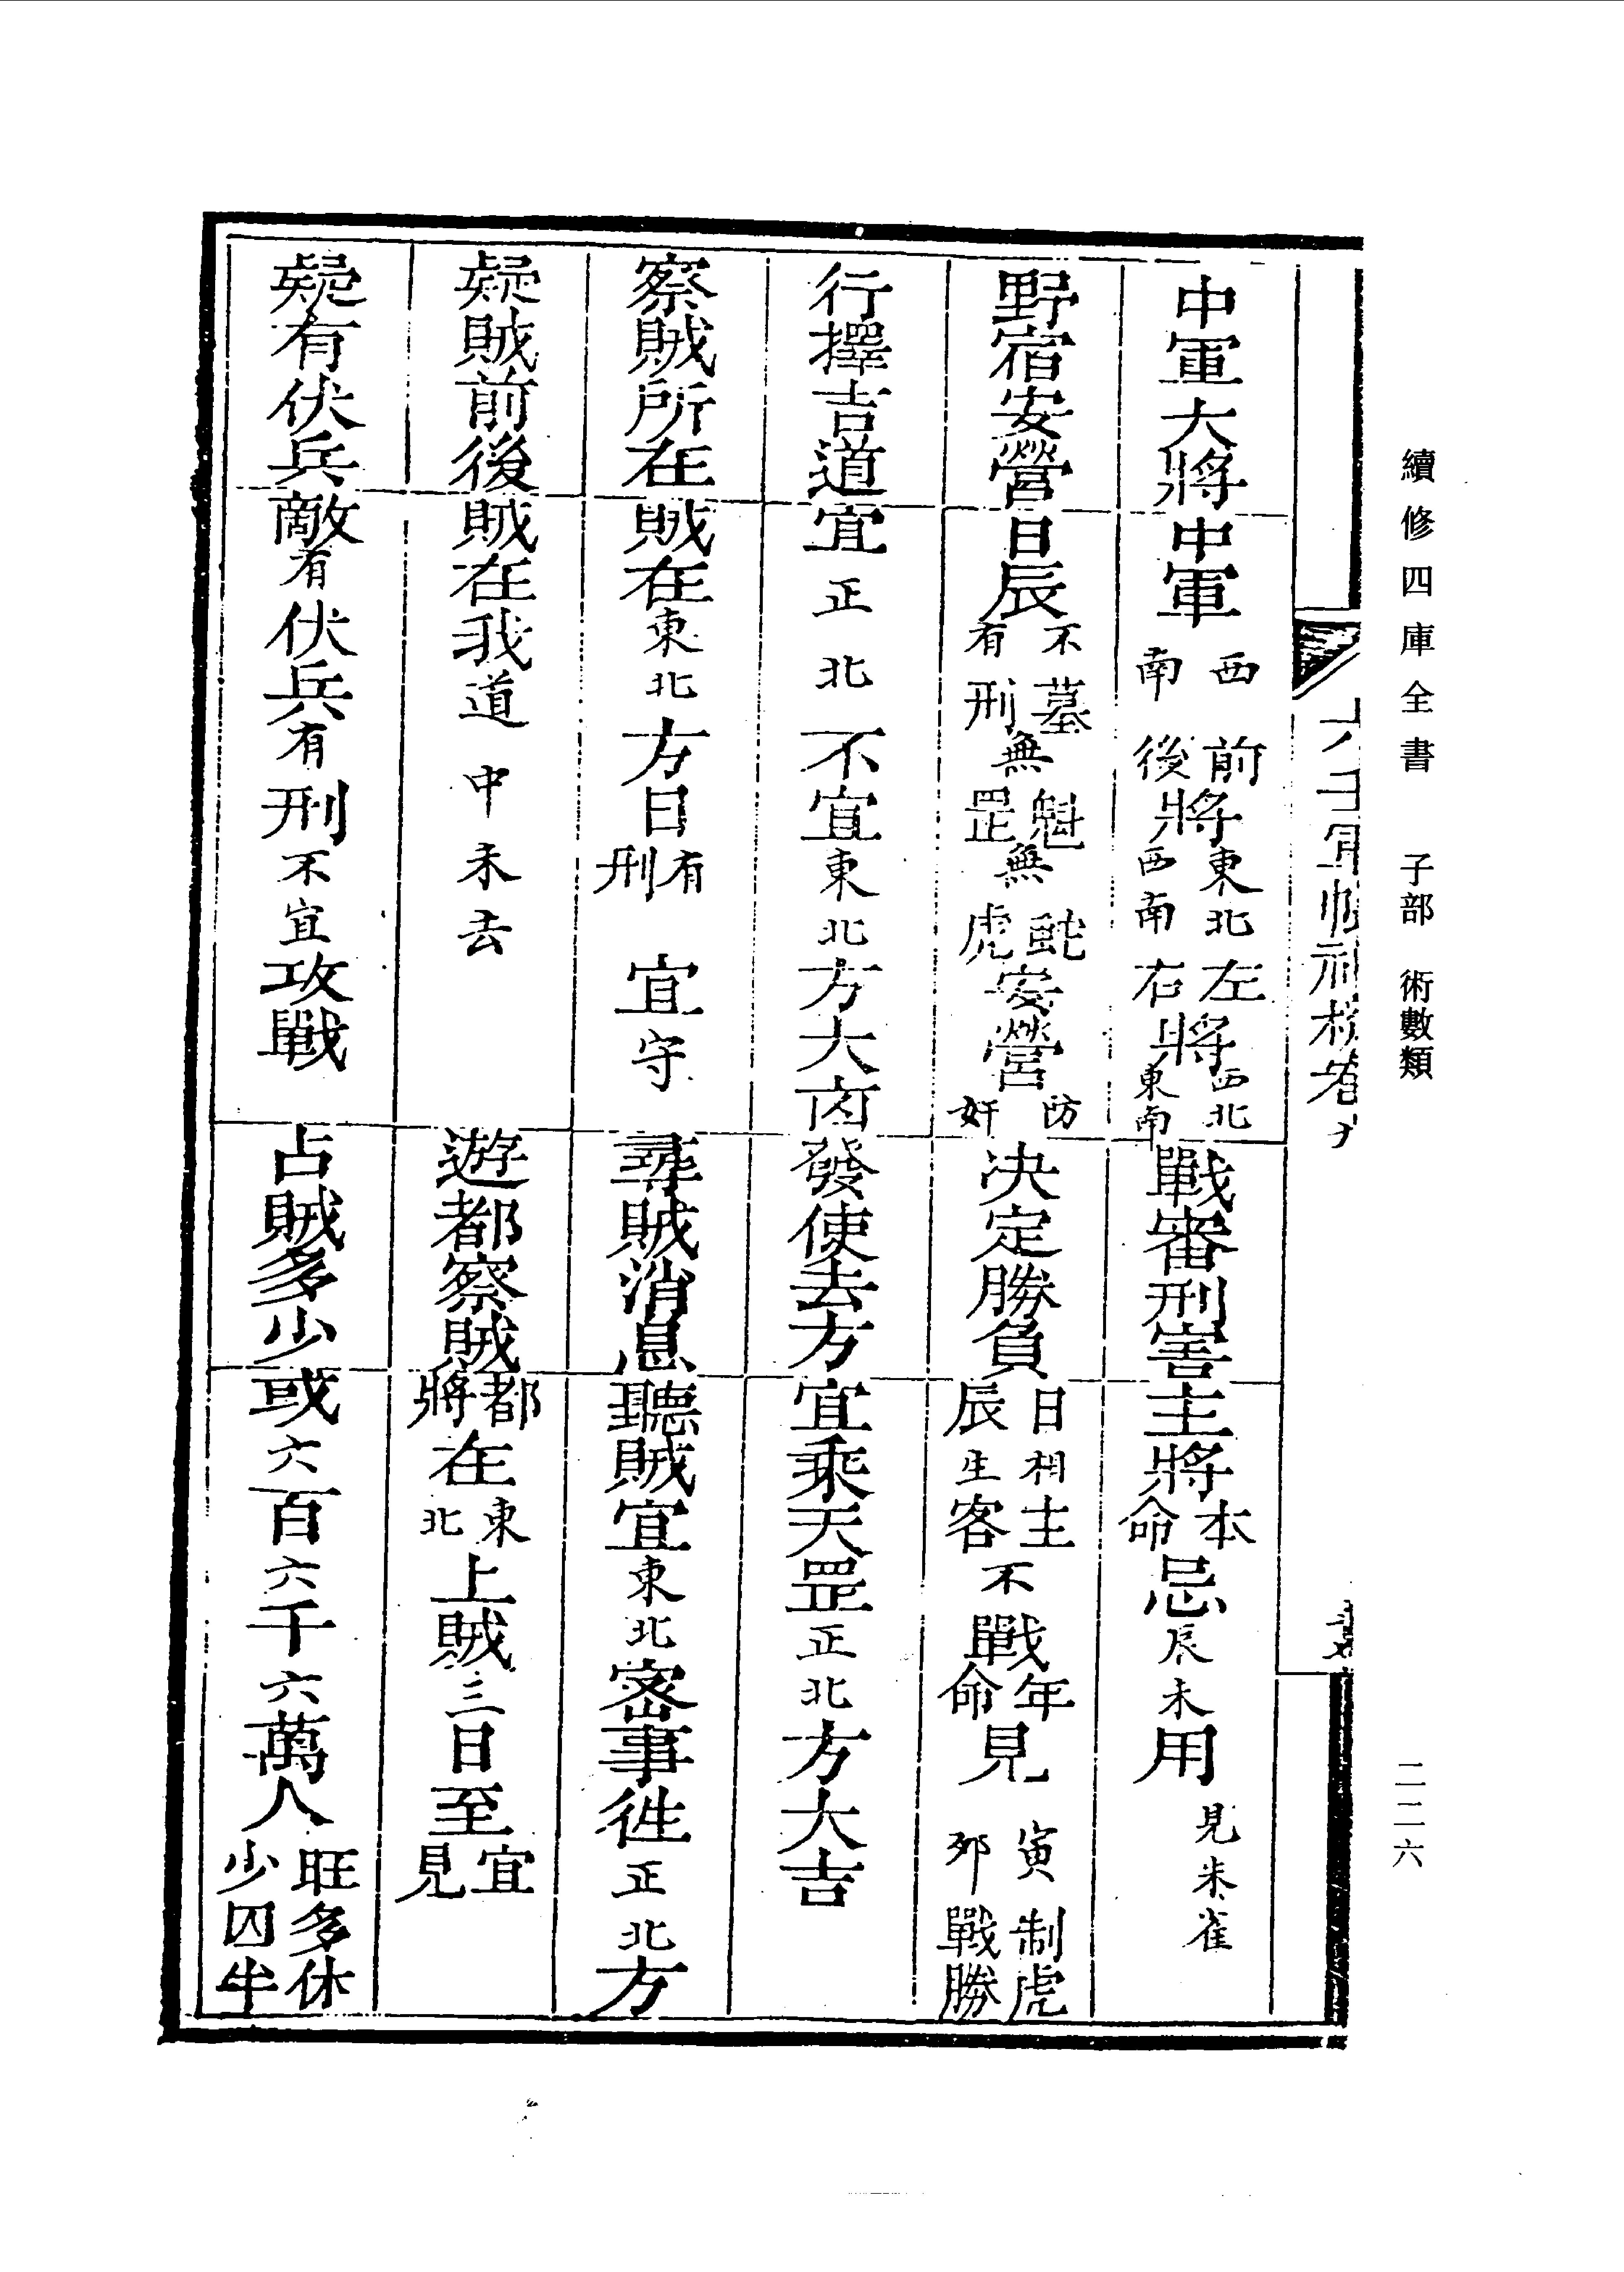 續修四庫全書 子部 術數類
二二六
中軍大將中軍西南前後將東北西南左右將西北東南戰審刑害主將本命忌辰未用見朱雀
野宿安營日辰不有墓刑無魁罡無蛇虎安營防奸決定勝負日辰相生主客不戰年命見寅卯制虎戰勝
行擇吉道宜正北不宜東北方大㐫發使去方宜乘天罡正北方大吉
察賊所在賊在東北方日有刑宜守尋賊消息聽賊宜東北密事徃正北方
疑賊前後賊在我道中未去遊都察賊都將在東北上賊三日至宜見
疑有伏兵敵有伏兵有刑不宜攻戰占賊多少或六百六千六萬人旺多休少囚半